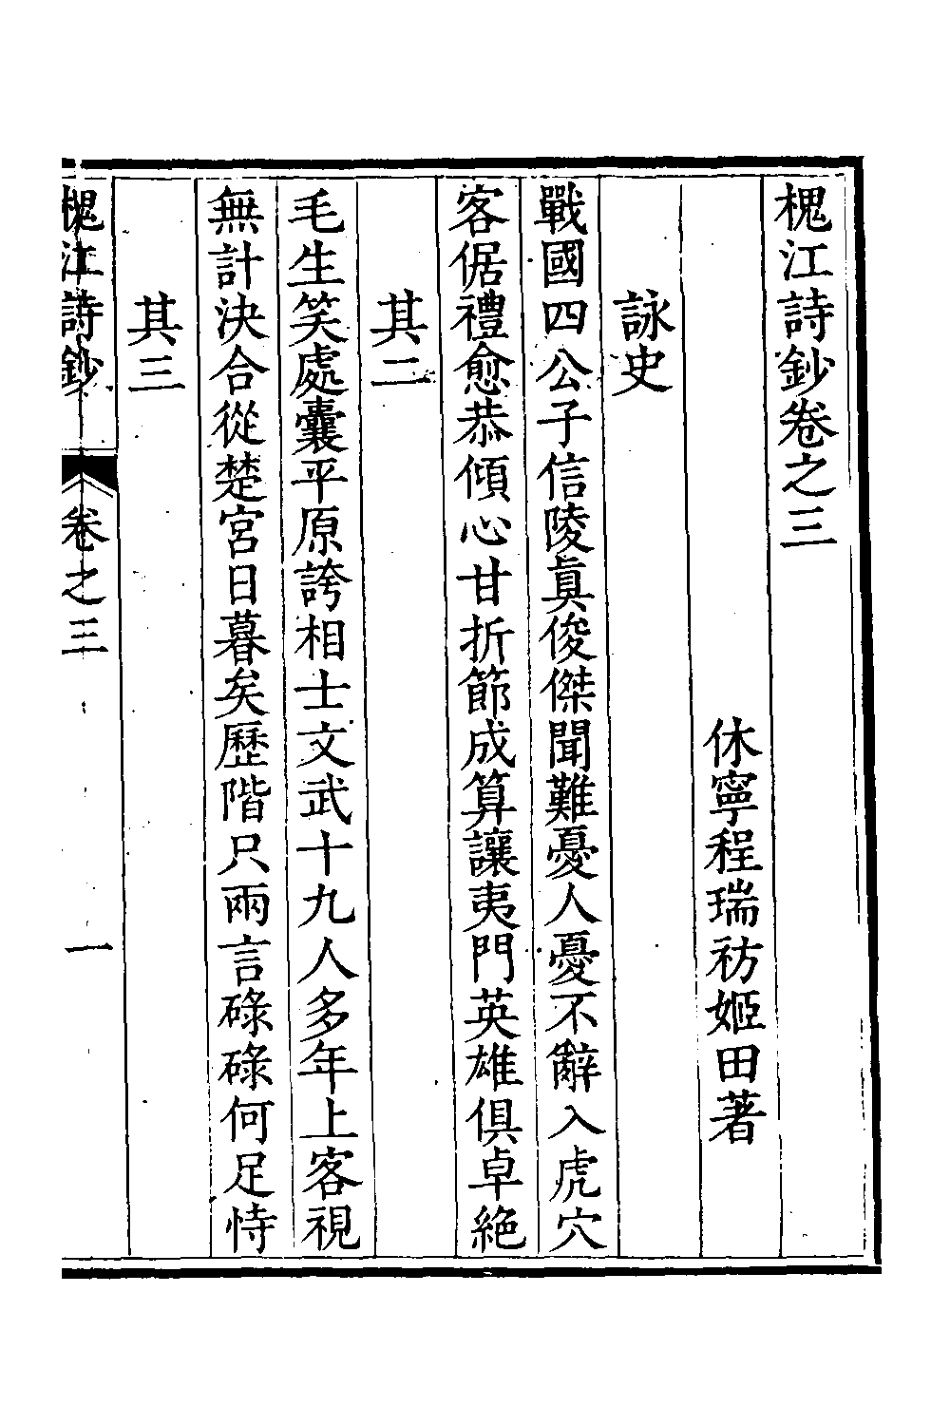 槐江詩鈔卷之三
休寧程瑞祊姬田著
詠史
戰國四公子信陵眞俊傑聞難憂人憂不辭入虎穴
客倨禮愈恭傾心甘折節成算讓夷門英雄俱卓絶
其二
毛生笑處囊平原誇相士文武十九人多年上客視
無計決合從楚宮日暮矣歷階只兩言碌碌何足恃
其三
槐江詩鈔
卷之三
一